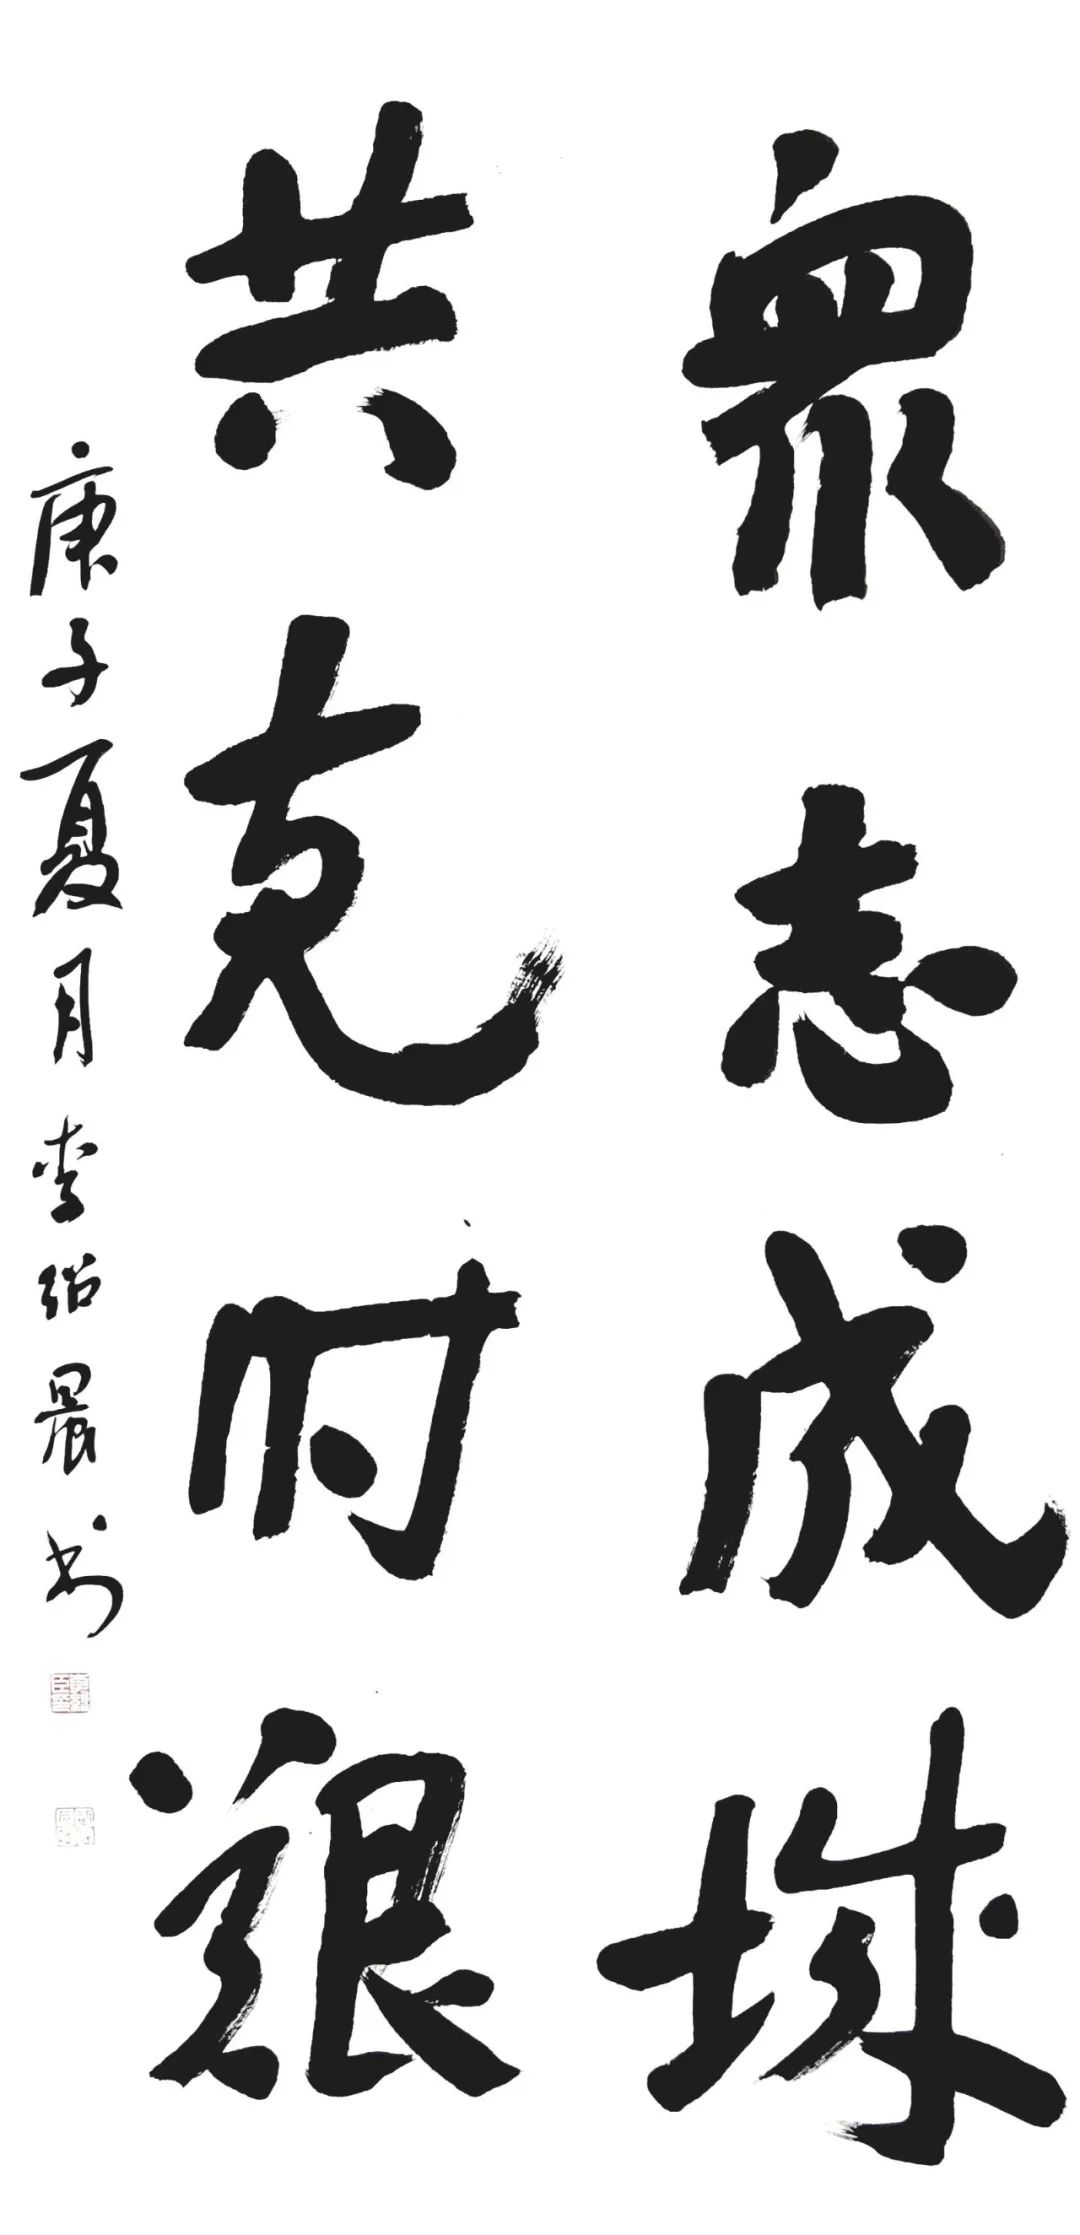 衆志成城
共克时艱
庚子夏月李紹晨书